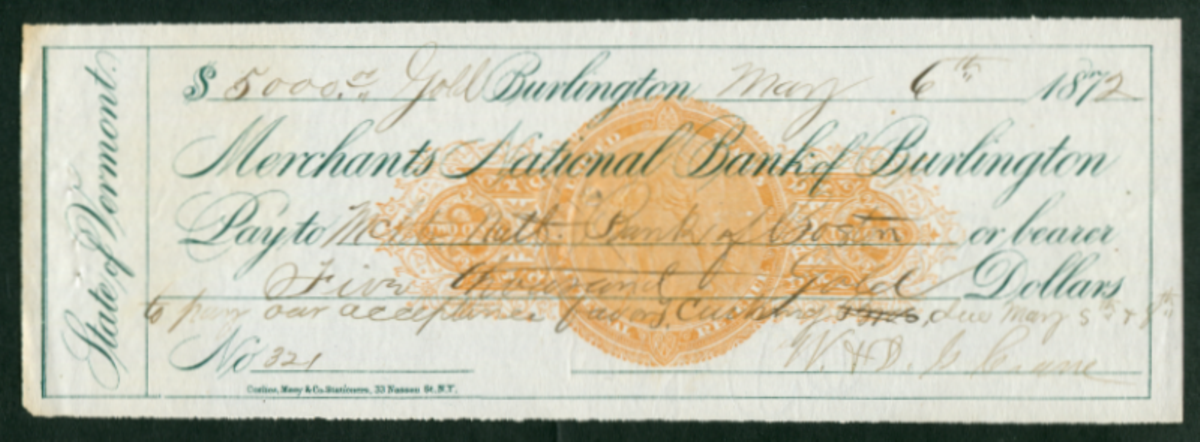 State of Vermont.
$ 5000.00 Gold Burlington May 6th 1872
Merchants National Bank of Burlington
Pay to Mchts Natl. Bank of Boston or bearer
Five thousand Gold Dollars
to pay our acceptance favor Cushing due May 5th & 8th
No 321
Corlies, Macy & Co. Stationers, 33 Nassau St. N.Y.